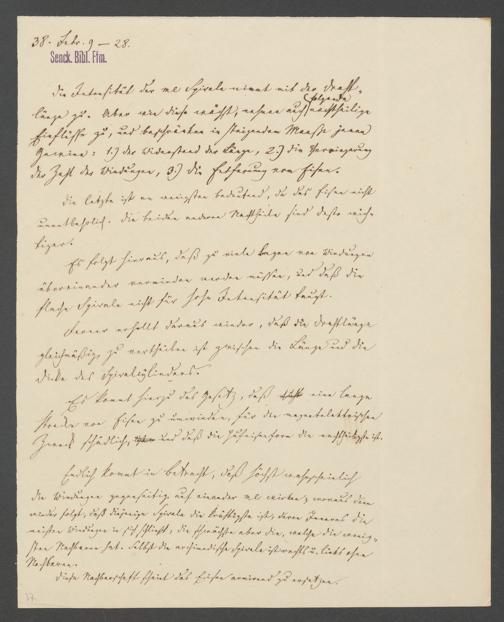 38. Febr. 9 – 28.
Senck. Bibl. Ffm.
Die Intensität der Spirale nimmt mit der Draht-
länge zu. Aber wie diese wächst, nehmen auch folgende nachtheilige
Einflüsse zu, und beschränken in steigendem Maaße jenen
Gewinn: 1.) der Widerstand der Länge, 2.) die Verringerung
der Zahl der Windungen, 3.) die Entfernung vom Eisen.
Die letzte ist am wenigsten bedeutend, da das Eisen nicht
unentbehrlich. Die beiden anderen Nachtheile sind desto wich-
tiger.
Es folgt hieraus, daß zu viele Lagen von Windungen
übereinander vermieden werden müssen, und daß die
flache Spirale nicht für hohe Intensität taugt.
Ferner erhellt daraus wieder, daß die Drahtlänge
gleichmäßig zu vertheilen ist zwischen die Länge und die
Dicke des Spiralcylinders.
Es kommt hierzu das Gesetz, daß eine lange
Strecke von Eisen zu umwinden, für die magnetelektrischen
Zwecke schädlich, und daß die Hufeisenform die ist.
Endlich kommt in Betracht, daß höchst wahrscheinlich
die Windungen gegenseitig auf einander wirken, woraus dann
wieder folgt, daß diejenige Spirale die kräftigste ist, deren Inneres die
meisten Windungen in sich schließt, die schwächste aber die, welche die wenig-
sten Nachbaren hat. Selbst die archimedische Spirale ist rechts u. links ohne
Nachbaren.
Diese Nachbarschaft scheint das Eisen zu ersetzen.
37.